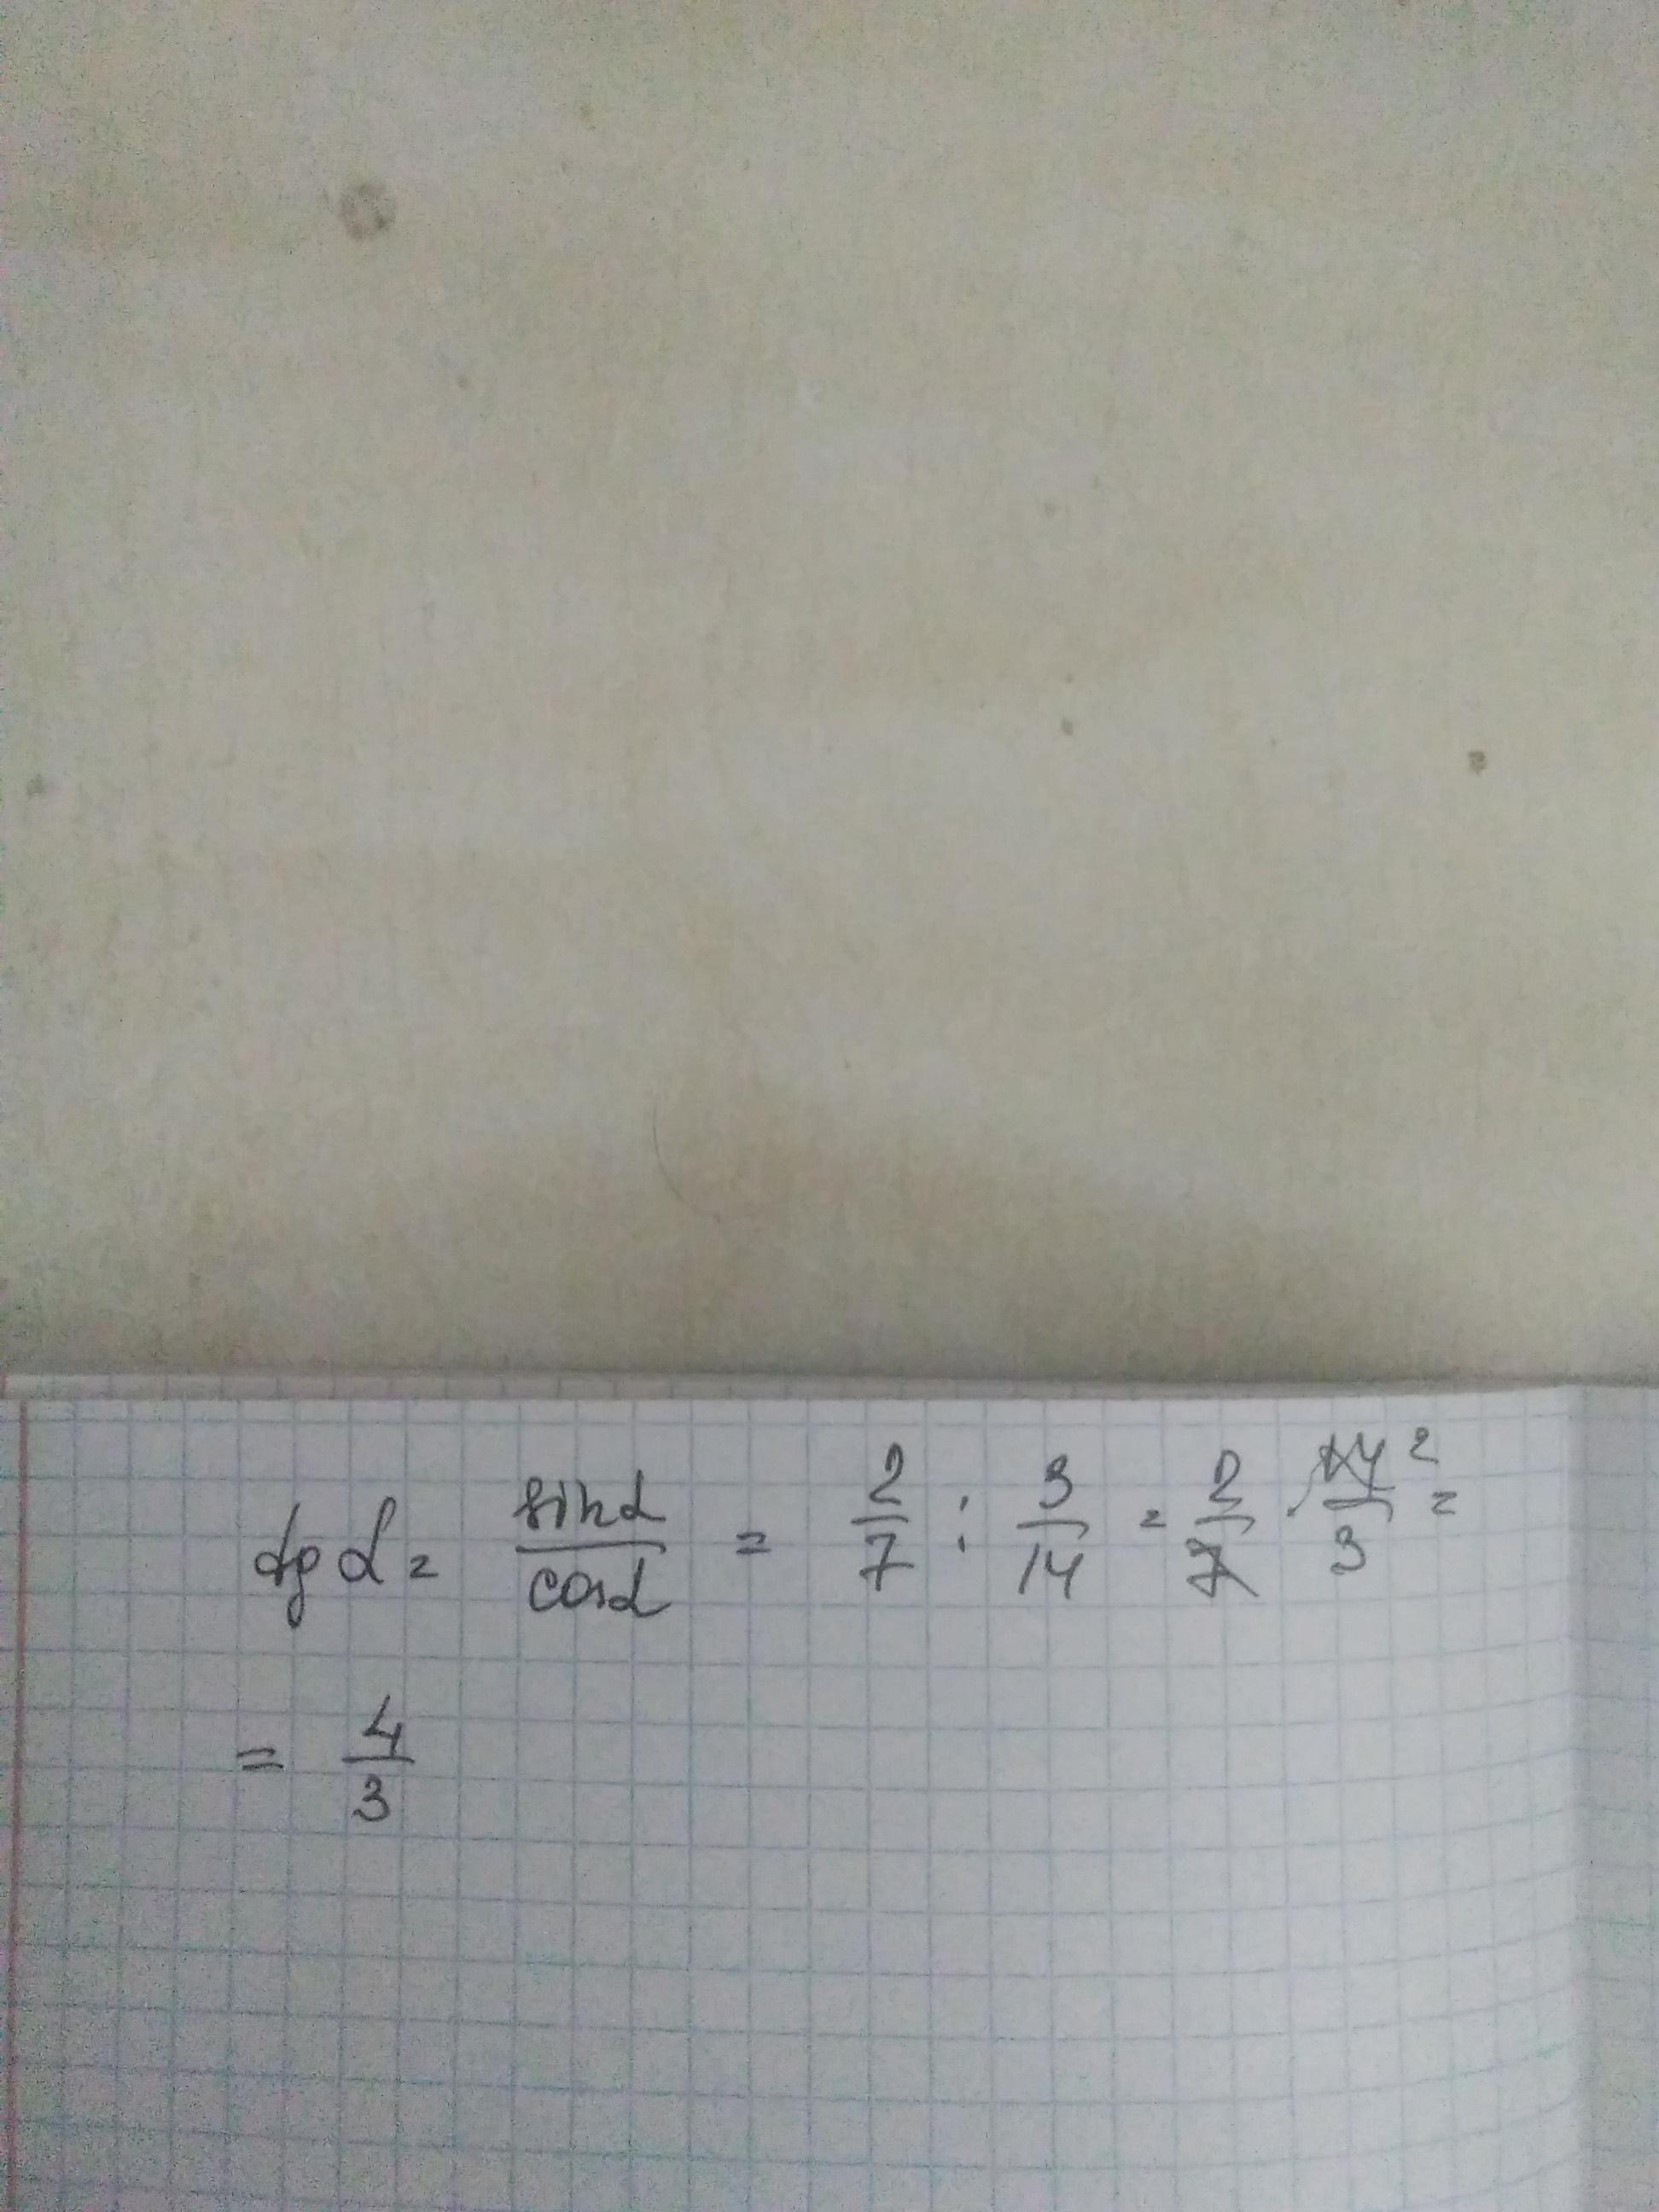 tg α = sin α / cos α = 2/7 : 3/14 = 2/7 · 14/3 2 =
= 4/3